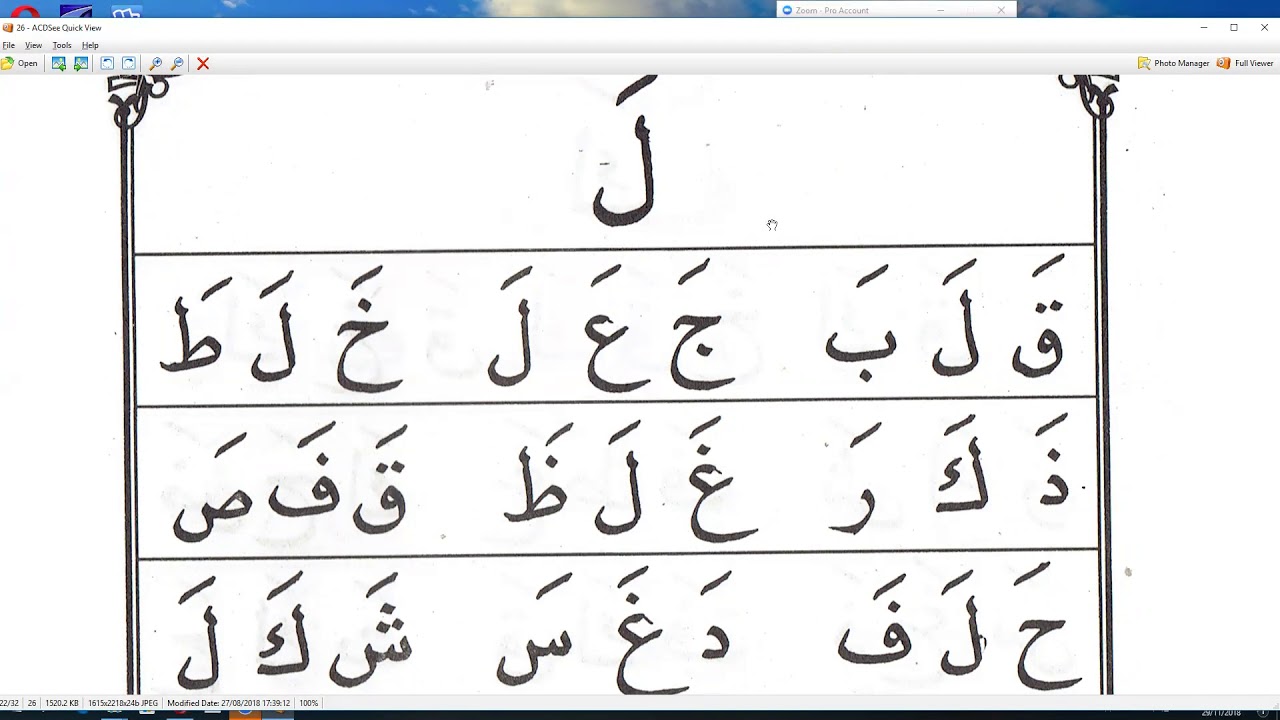 Zoom - Pro Account
26 - ACDSee Quick View
File View Tools Help
Open Photo Manager Full Viewer
لَ
قَ لَ بَ جَ عَ لَ خَ لَ طَ
ذَ كَ رَ غَ لَ ظَ قَ فَ صَ
حَ لَ فَ دَ غَ سَ شَ كَ لَ
22/32 26 1520.2 KB 1615x2218x24b JPEG Modified Date: 27/08/2018 17:39:12 100%
29/11/2018